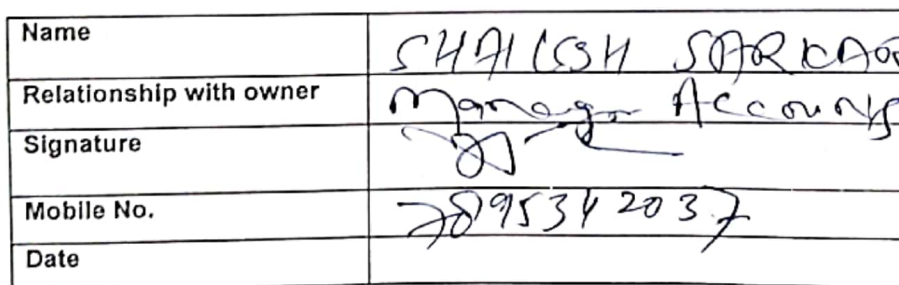 Name SHAILESH SARKAR
Relationship with owner Manager Accounts
Signature
Mobile No. 7895342037
Date